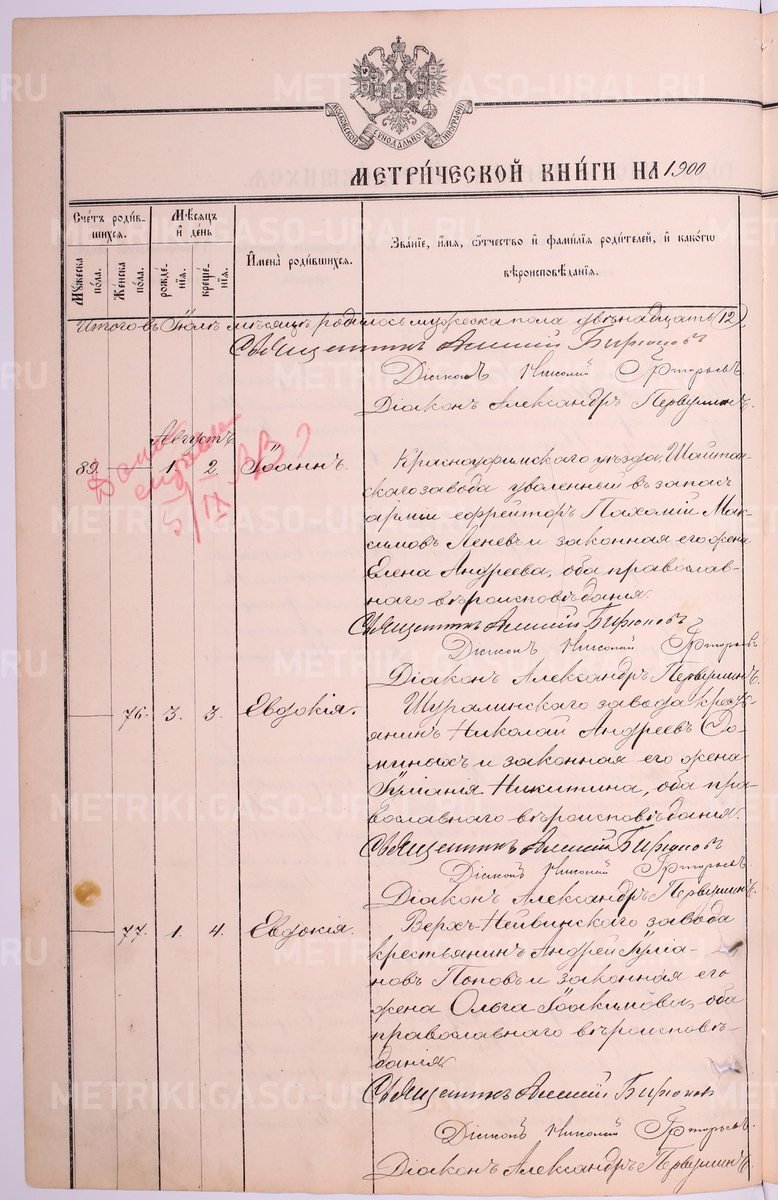 МОСКОВСКОЙ СѴНОДАЛЬНОЙ ТИПОГРАФІИ
МЕТРИ́ЧЕСКОЙ КНИ́ГИ НА 1900
Сче́тъ роди́вшихся.
Мѣ́сяцъ и́ день
И҆мена̀ роди́вшихся.
Зва́нїе, и҆́мя, ѻ҆́тчество и҆ фами́лїѧ роди́телей, и҆ како́гѡ вѣроисповѣ́данїя.
Мꙋ́жеска по́ла.
Же́нска по́ла.
рожде́нїя.
креще́нїя.
Итого въ Іюлѣ мѣсяцѣ родилось мужеска пола двѣнадцать (12)
Священникъ Алексій Бирюковъ
Діаконъ Николай
Діаконъ Александръ Первушинъ.
Августъ
82. 1. 2. Іоаннъ.
Красноуфимскаго уѣзда Шайтан-
скаго завода уволенный въ запас
арміи ефрейторъ Пахомій Мак-
симовъ Леневъ и законная его жена
Елена Андреева, оба православ-
наго вѣроисповѣданія.
Священникъ Алексій Бирюковъ
Діаконъ Николай
Діаконъ Александръ Первушинъ.
76. 3. 3. Евдокія.
Шуралинскаго завода крестъ-
янинъ Николай Андреевъ Фо-
миныхъ и законная его жена
Іуліанія Никитина, оба пра-
вославнаго вѣроисповѣданія.
Священникъ Алексій Бирюковъ
Діаконъ Николай
Діаконъ Александръ Первушинъ.
77. 1. 4. Евдокія.
Верхъ-Нейвинскаго завода
крестьянинъ Андрей Іуліа-
новъ Поповъ и законная его
жена Ольга Іоакимова, оба
православнаго вѣроисповѣ-
данія.
Священникъ Алексій Бирюковъ
Діаконъ Николай
Діаконъ Александръ Первушинъ.
METRIKI.GASO-URAL.RU